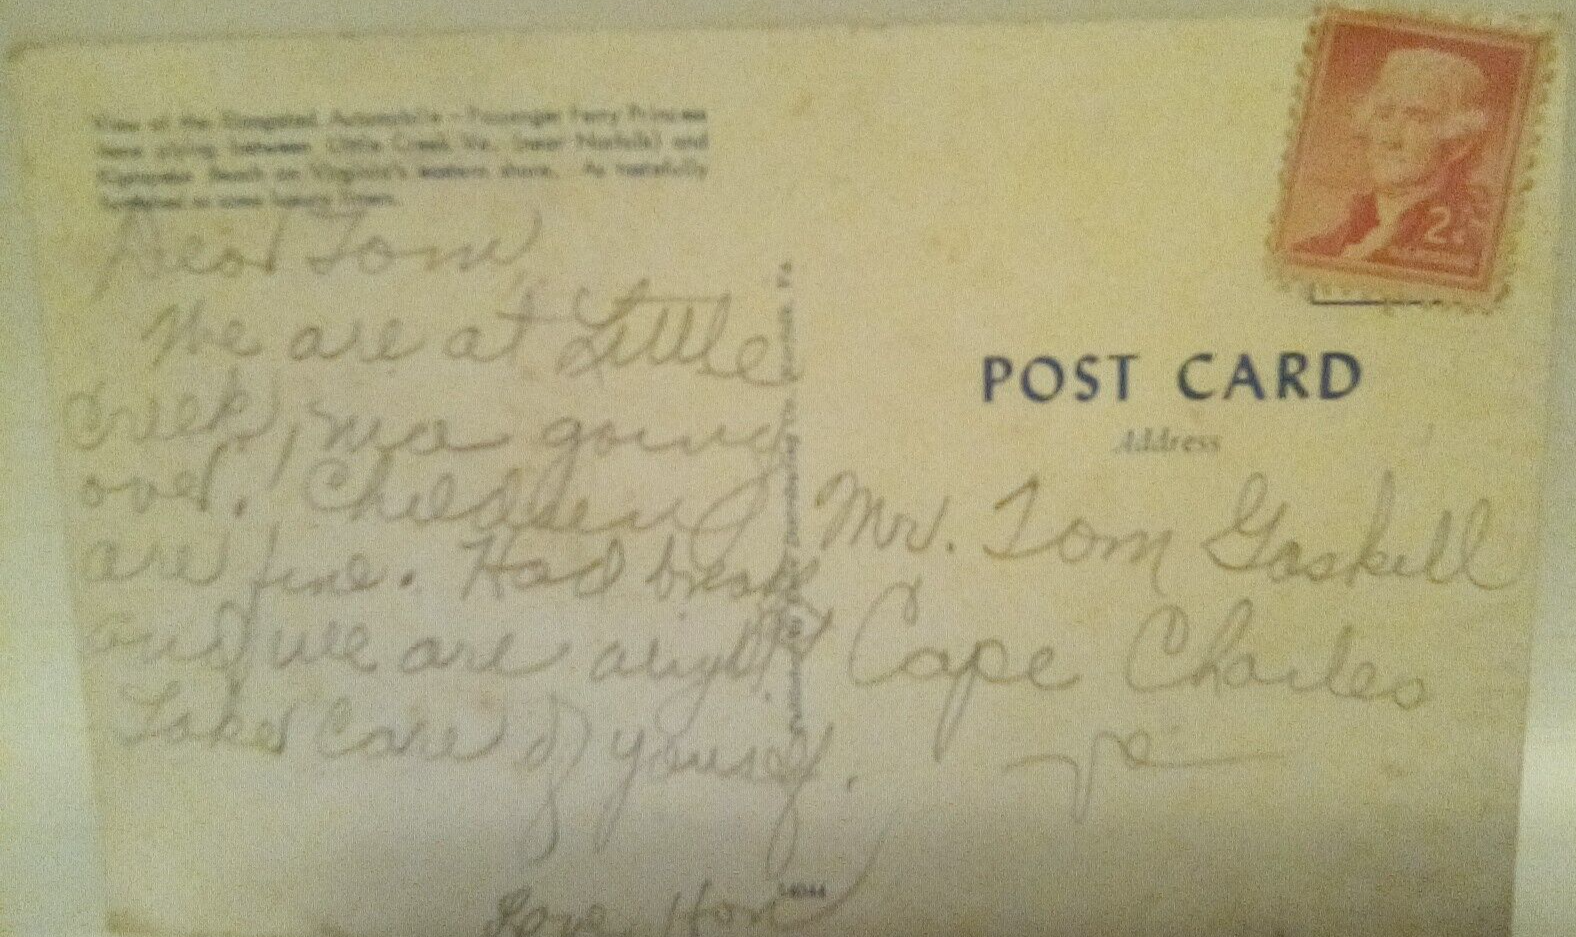 View of the Elongated Automobile - Passenger Ferry Princess
Anne plying between Little Creek Va., (near Norfolk) and
Kiptopeke Beach on Virginia's eastern shore. As tastefully
furnished as some luxury liners.
Dear Tom
We are at Little
Creek, going
over. Children
are fine. Had break
and we are alright
Take care of yourself.
Love, Hon
2¢
POST CARD
Address
Mr. Tom Gaskill
Cape Charles
Va